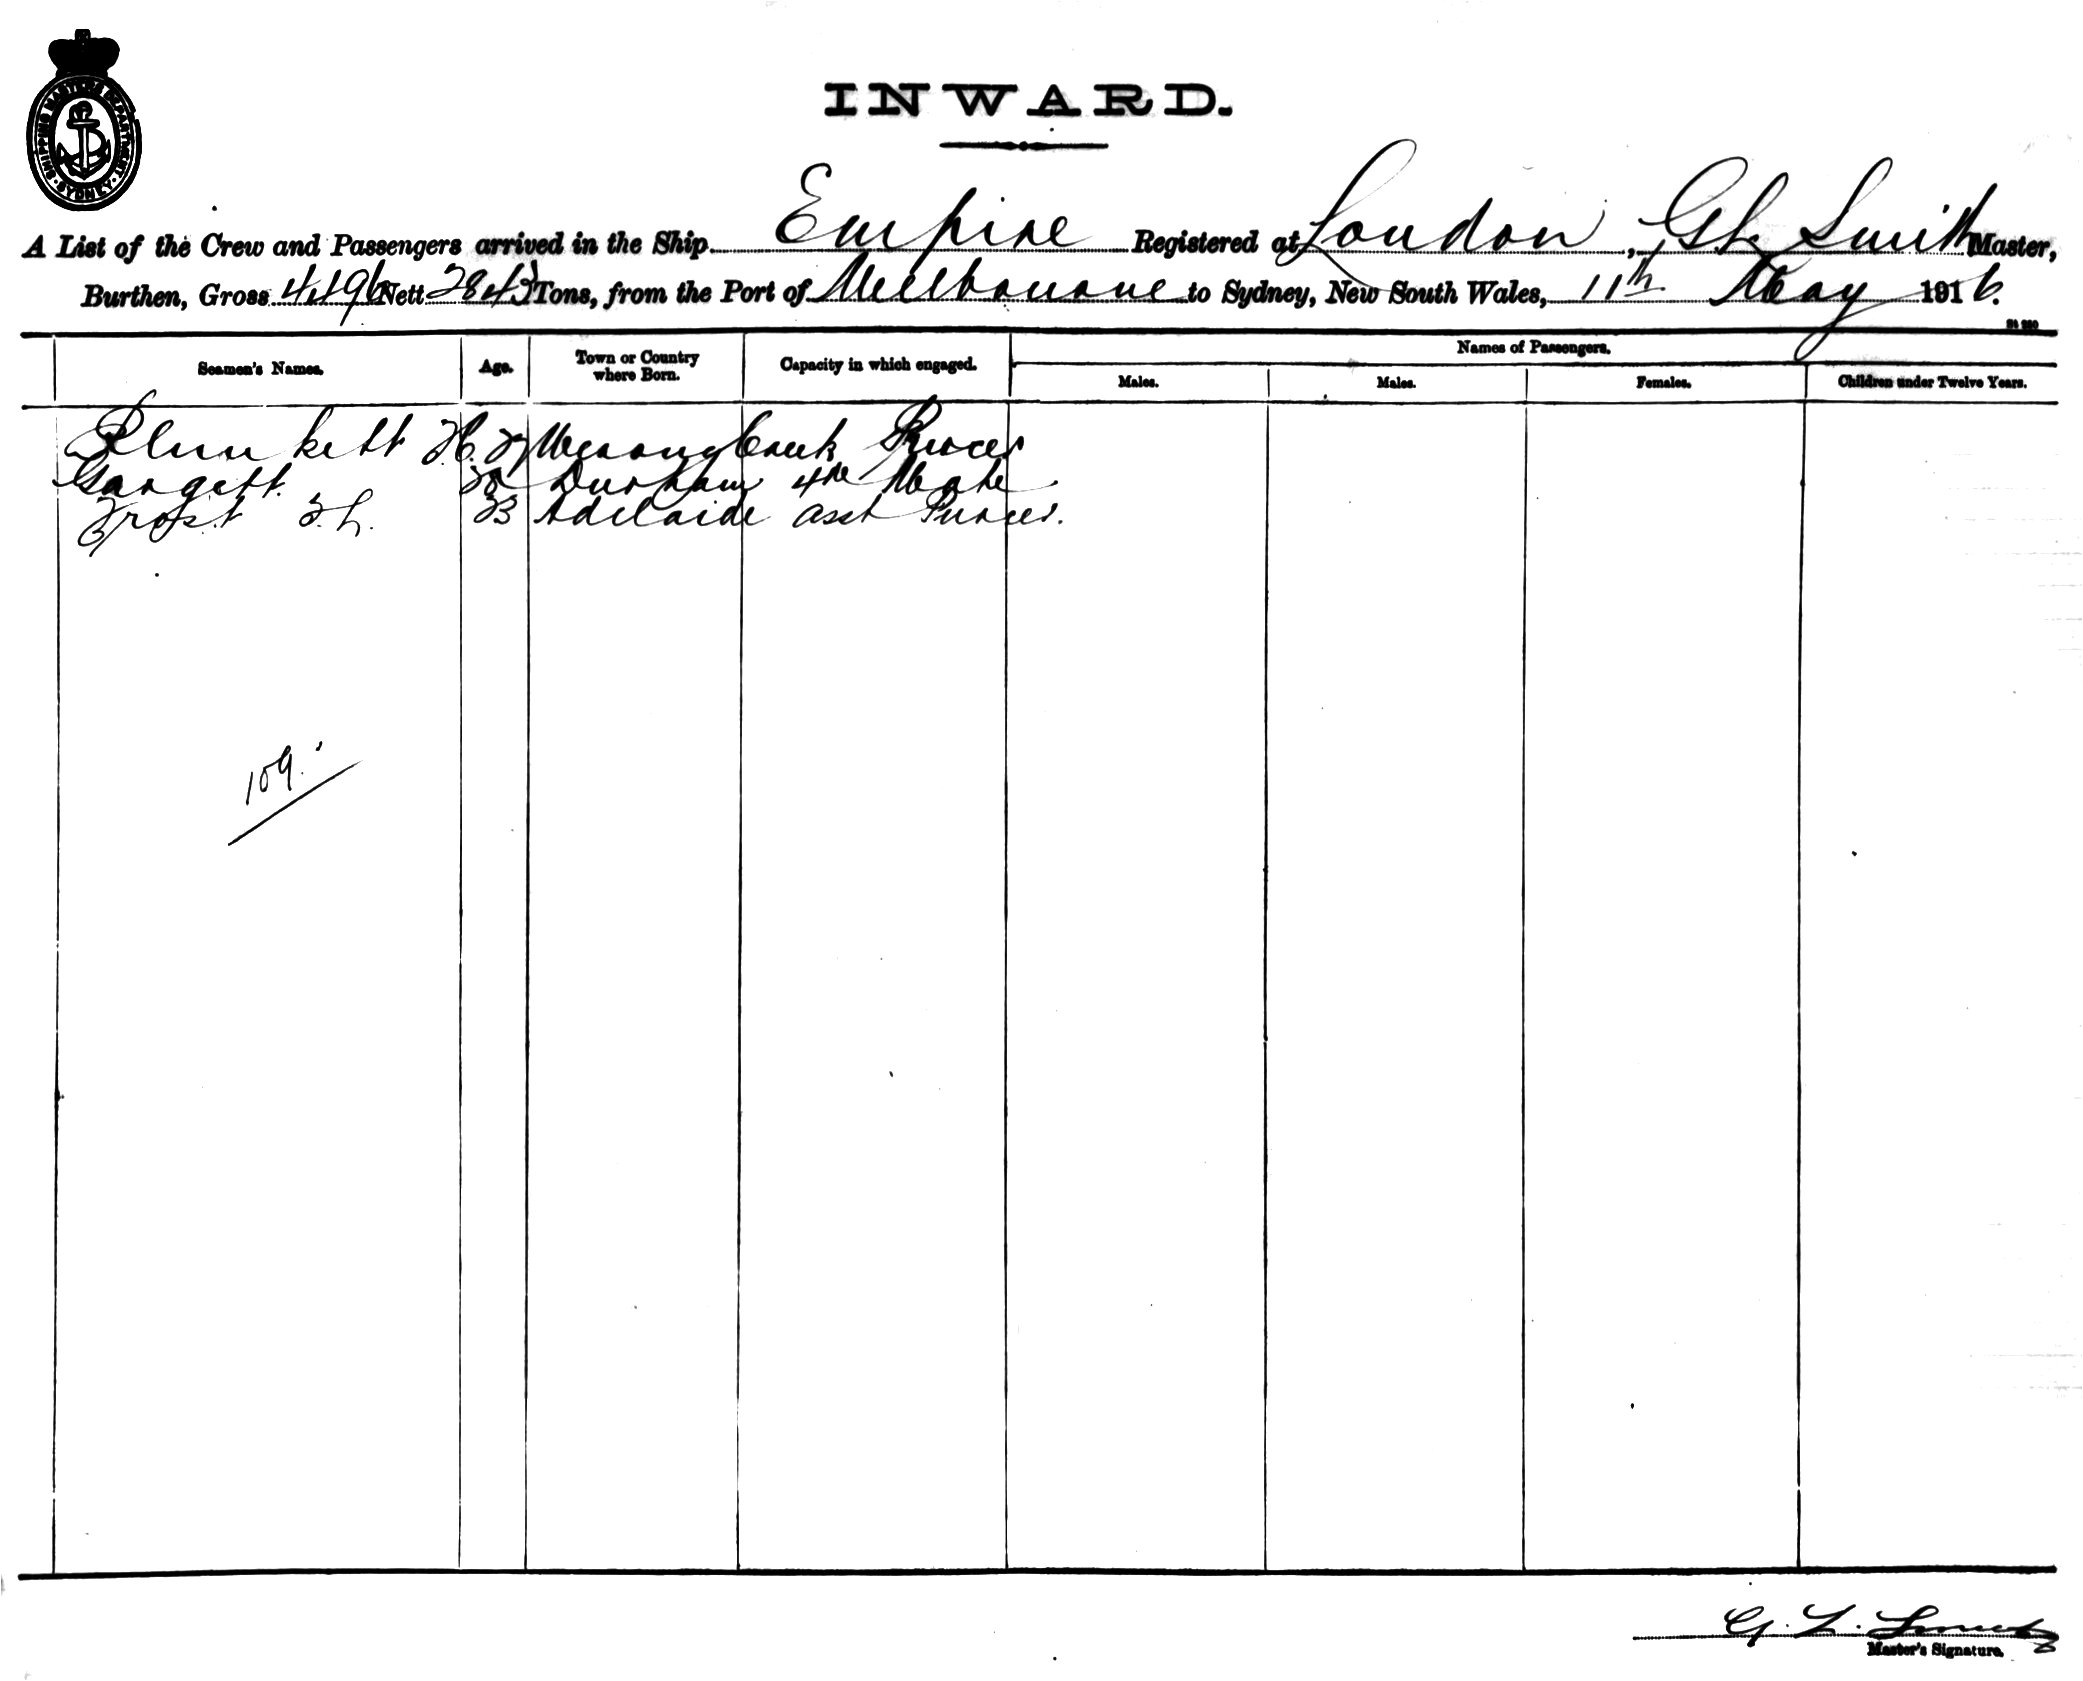 SHIPPING MASTER'S DEPARTMENT
SYDNEY
INWARD.
A List of the Crew and Passengers arrived in the Ship Empire Registered at London, G L Smith Master,
Burthen, Gross 4496 Nett 2843 Tons, from the Port of Melbourne to Sydney, New South Wales, 11th May 1916.
Names of Passengers.
Seamen's Names. Age. Town or Country where Born. Capacity in which engaged. Males. Males. Females. Children under Twelve Years.
Plunkett H. Creek Purser
Gargett. Durham 4th Mate
Frost F. L. 23 Adelaide Asst Purser.
109.
G. L. Smith
Master's Signature.